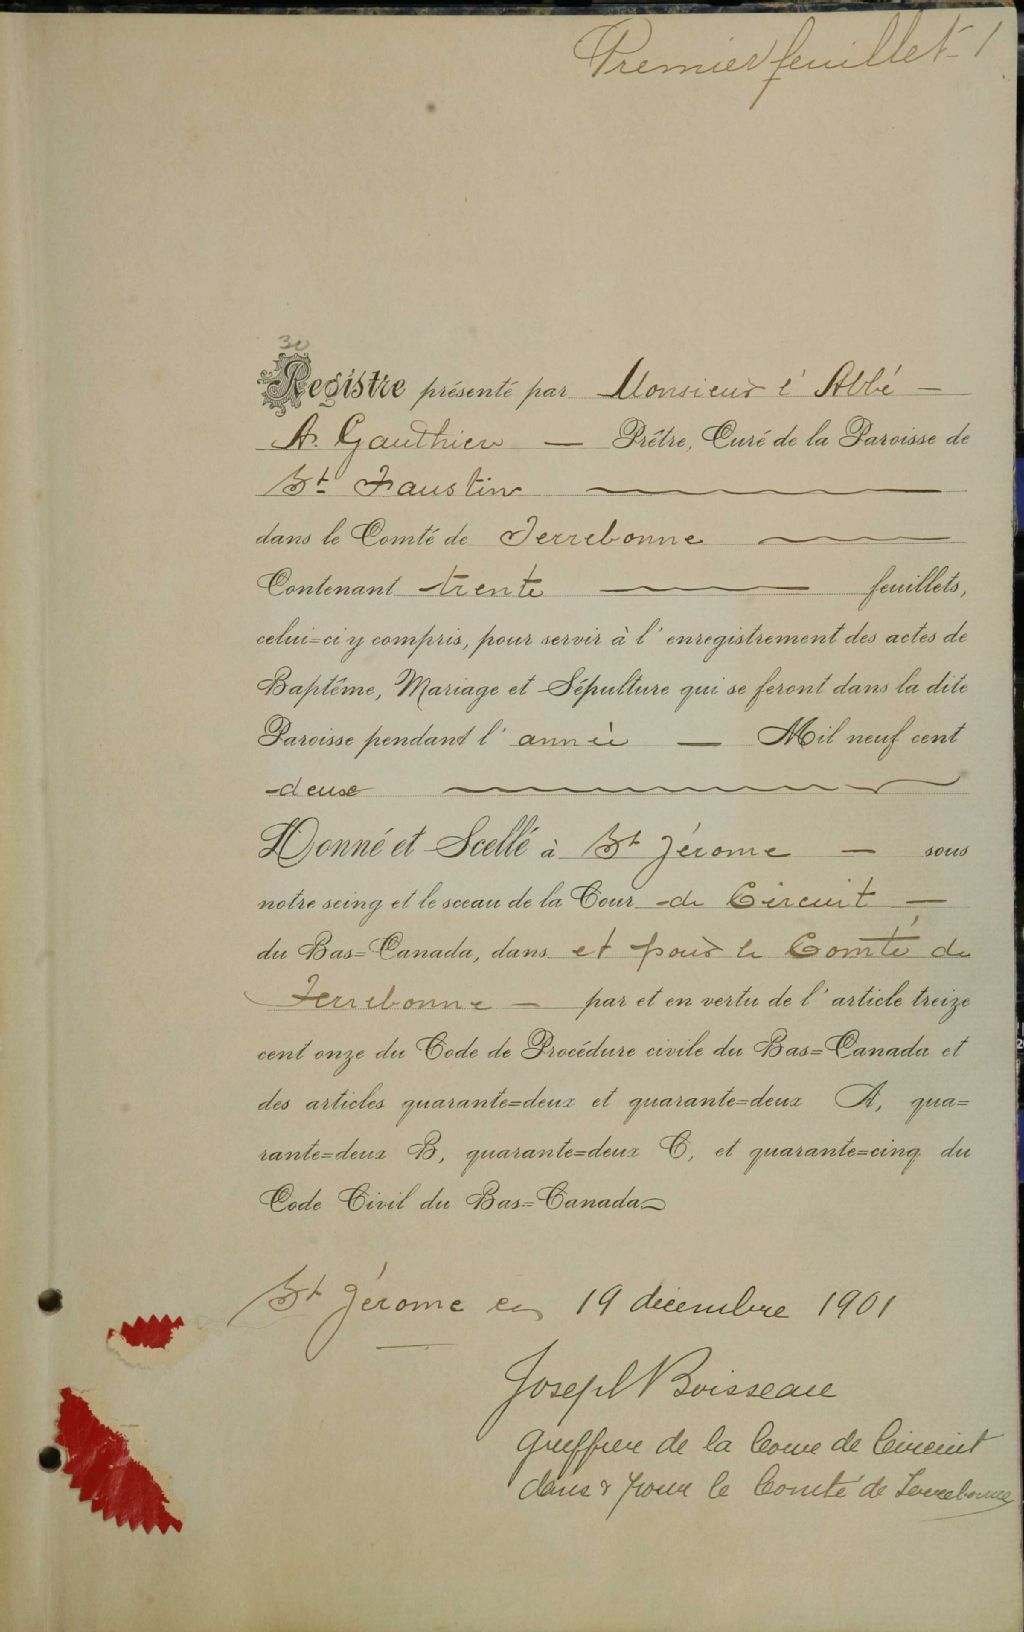 Premier feuillet - 1
30
Registre présenté par Monsieur l'Abbé —
A. Gauthier — Prêtre, Curé de la Paroisse de
St Faustin
dans le Comté de Terrebonne
Contenant trente feuillets,
celui=ci y compris, pour servir à l'enregistrement des actes de
Baptême, Mariage et Sépulture qui se feront dans la dite
Paroisse pendant l'année — Mil neuf cent
deux
Donné et Scellé à St Jérome — sous
notre seing et le sceau de la Cour de Circuit —
du Bas=Canada, dans et pour le Comté de
Terrebonne — par et en vertu de l'article treize
cent onze du Code de Procédure civile du Bas=Canada et
des articles quarante=deux et quarante=deux A, qua=
rante=deux B, quarante=deux C, et quarante=cinq du
Code Civil du Bas=Canada
St Jérome ce 19 décembre 1901
Joseph Boisseau
Greffier de la Cour de Circuit
dans & pour le Comté de Terrebonne